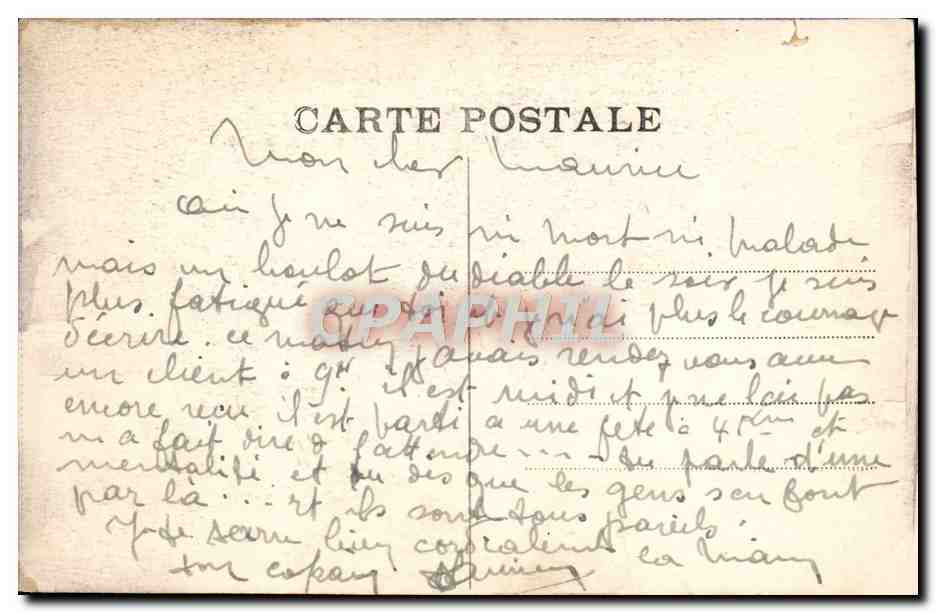 CARTE POSTALE
Mon cher Maurice
Oui je ne suis ni mort ni malade
mais un boulot du diable le soir je suis
plus fatigué que toi et j'ai plus le courage
d'écrire. ce matin j'avais rendez vous avec
un client à 9H il est midi et je ne l'ai pas
encore reçu il est parti à une fête à 45km et
m'a fait dire d l'attendre.... tu parle d'une
mentalité et tu dis que les gens s'en font
par là... et ils sont tous pareils.
Je te serre bien cordialement la main
ton copain
CPAPHIL